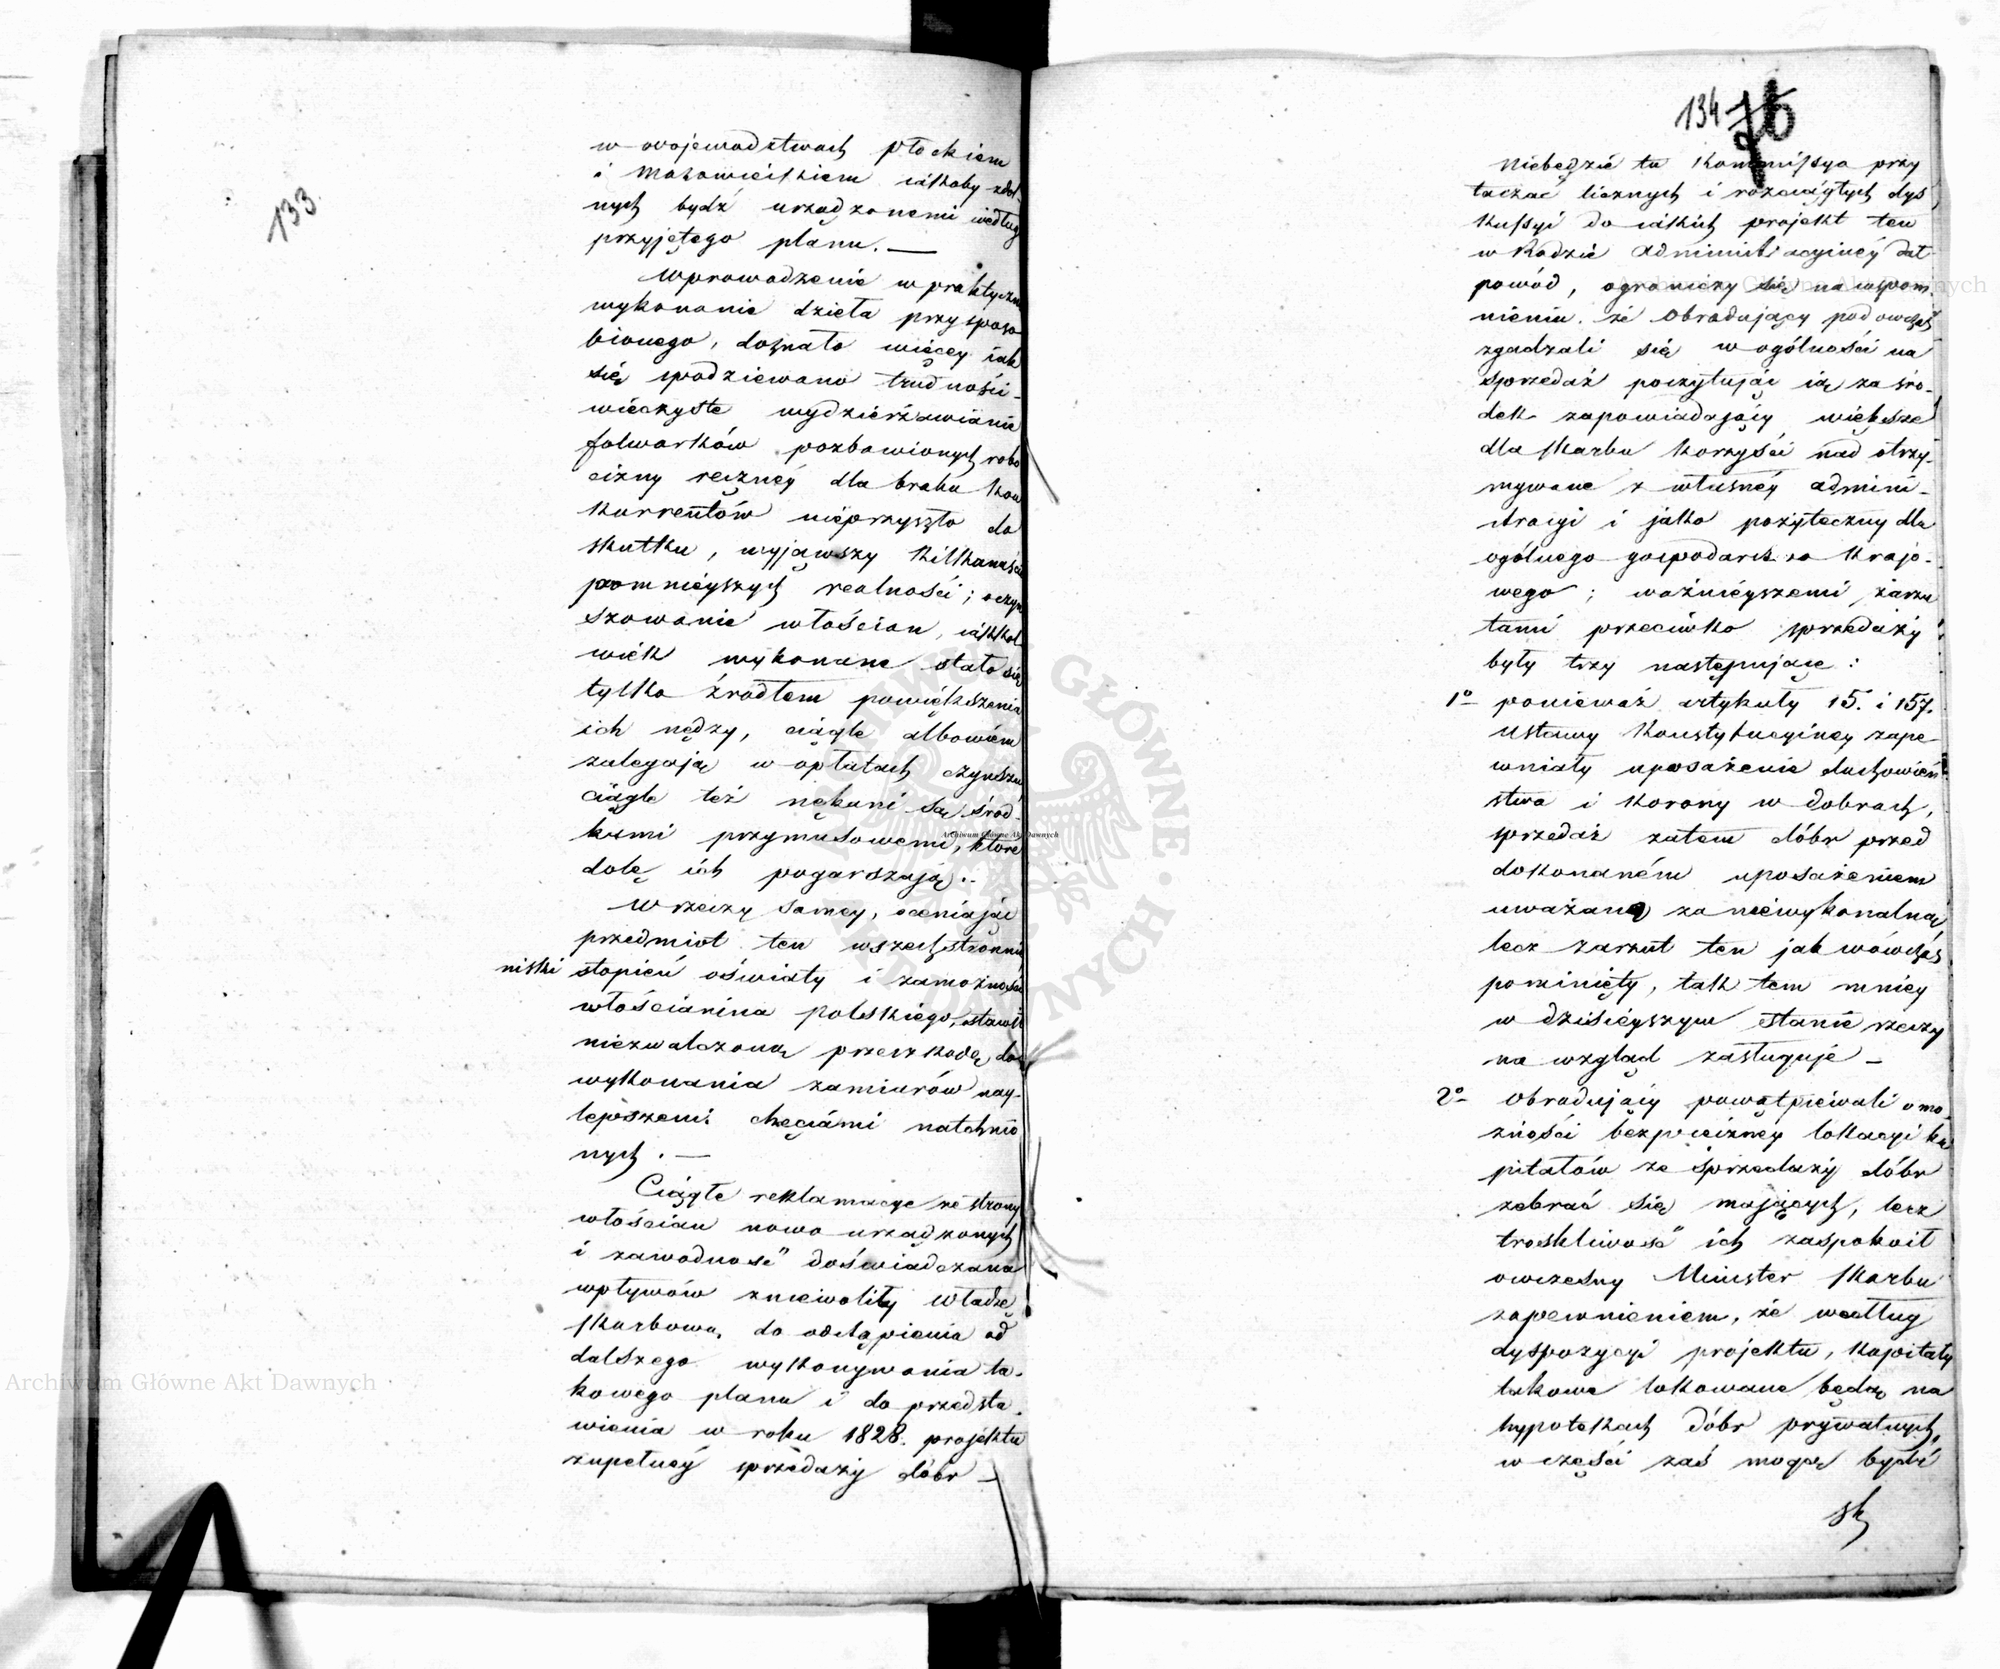 133.
w wojewodztwach Płockiem
i Mazowieckiem iakoby zdol-
nych bydź urządzonemi według
przyjętego planu. —
Wprowadzenie w praktyczne
wykonanie dzieła przysposo
bionego, doznało więcey iak
się spodziewano trudności -
wieczyste wydzierżawianie
folwarków pozbawionych robo
cizny ręczney dla braku kon
kurrentów nieprzyszło do
skutku, wyjąwszy kilkanaście
pomnieyszych realności; oczyn
szowanie włościan, iakkol
wiek wykonane stało się
tylko źrodłem powiększenia
ich nędzy, ciągle albowiem
zalegają w opłatach czynszu
ciągle też nękani są środ-
kami przymusowemi, które
dolę ich pogarszają. -
W rzeczy samey, oceniając
przedmiot ten wszechstronnie
nizki stopień oświaty i zamożności
włościanina polskiego, stawił
niezwalczoną przeszkodę do
wykonania zamiarów nay-
lepszemi chęciami natchnio
nych. —
Ciągłe reklamacye ze strony
włościan nowo urządzonych
i zawodność doświadczana
wpływów zniewoliły Władzę
Skarbową do odstąpienia od
dalszego wykonywania ta-
kowego planu i do przedsta-
wienia w roku 1828. projektu
zupełney sprzedaży dóbr —
134 76
Niebędzie tu Kommissya przy
taczać licznych i rozciągłych dys
kussyi do iakich projekt ten
w Radzie Administracyiney dał
powód, ograniczy się na wspom-
nieniu, że Obradujący podowczas
zgadzali się w ogólności na
sprzedaż poczytując ią za śro-
dek zapowiadający większe
dla Skarbu korzyści nad otrzy-
mywane z własney admini-
stracyi i jako pożyteczny dla
ogólnego gospodarstwa krajo-
wego; ważnieyszemi zarzu
tami przeciwko sprzedaży
były trzy następujące:
1o ponieważ artykuły 15. i 157.
Ustawy Konstytucyiney zape-
wniały uposażenie duchowień
stwa i Korony w dobrach,
sprzedaż zatem dóbr przed
dokonaném uposażeniem
uważano za niewykonalną
lecz zarzut ten jak wówczas
pominięty, tak tem mniey
w dzisieyszym stanie rzeczy
na wzgląd zasługuje —
2o Obradujący powątpiewali o mo-
żności bezpieczney lokacyi ka
pitałów ze sprzedaży dóbr
zebrać się mających, lecz
troskliwość ich zaspokoił
owczesny Minister Skarbu
zapewnieniem, że według
dyspozycyi projektu, kapitały
takowe lokowane będą na
hypotekach dóbr prywatnych,
w części zaś mogą bydź
sk
Archiwum Główne Akt Dawnych
Archiwum Główne Akt Dawnych